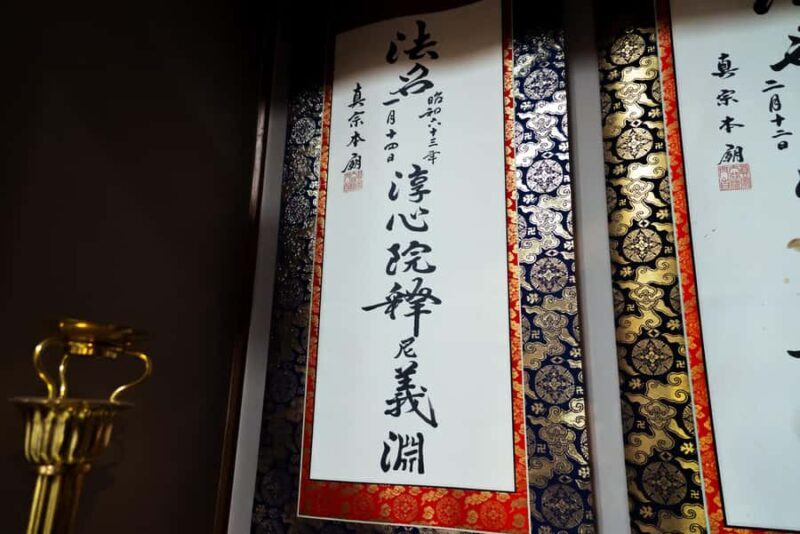 二月十二日
真宗本廟
法名
昭和六十三年
一月十四日
淳心院釋尼義淵
真宗本廟